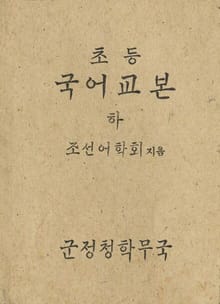 초등
국어교본
하
조선어학회 지음
군정청학무국